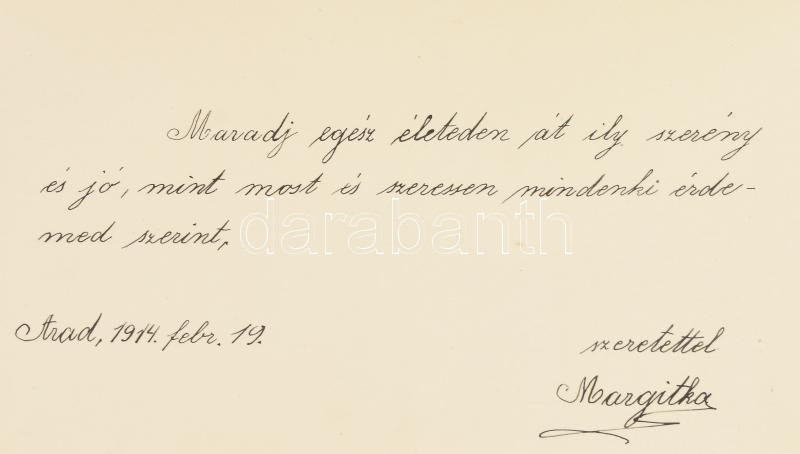 Maradj egész életeden át ily szerény
és jó, mint most és szeressen mindenki érde-
med szerint,
darabanth
Arad, 1914. febr. 19.
szeretettel
Margitka